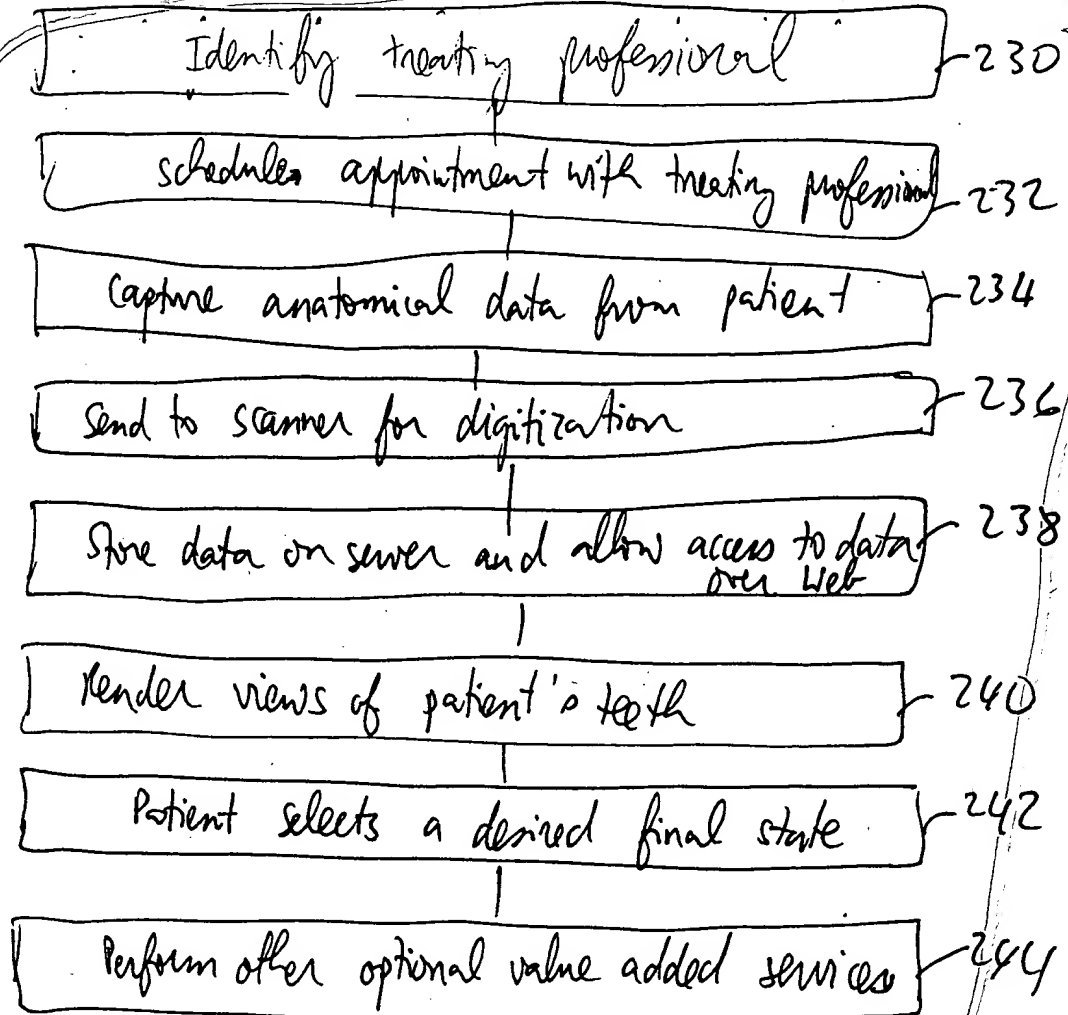 Identify treating professional 230
schedule appointment with treating professional 232
Capture anatomical data from patient 234
Send to scanner for digitization 236
Store data on server and allow access to data 238
over Web
Render views of patient's teeth 240
Patient selects a desired final state 242
Perform other optional value added services 244